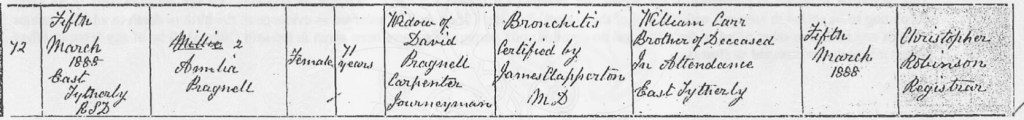 72
Fifth
March
1888
East
Tytherly
RSD
Millia 2
Amilia
Pragnell
Female
71
years
Widow of
David
Pragnell
Carpenter
Journeyman
Bronchitis
Certified by
James Clapperton
M D
William Carr
Brother of Deceased
In Attendance
East Tytherly
Fifth
March
1888
Christopher
Robinson
Registrar